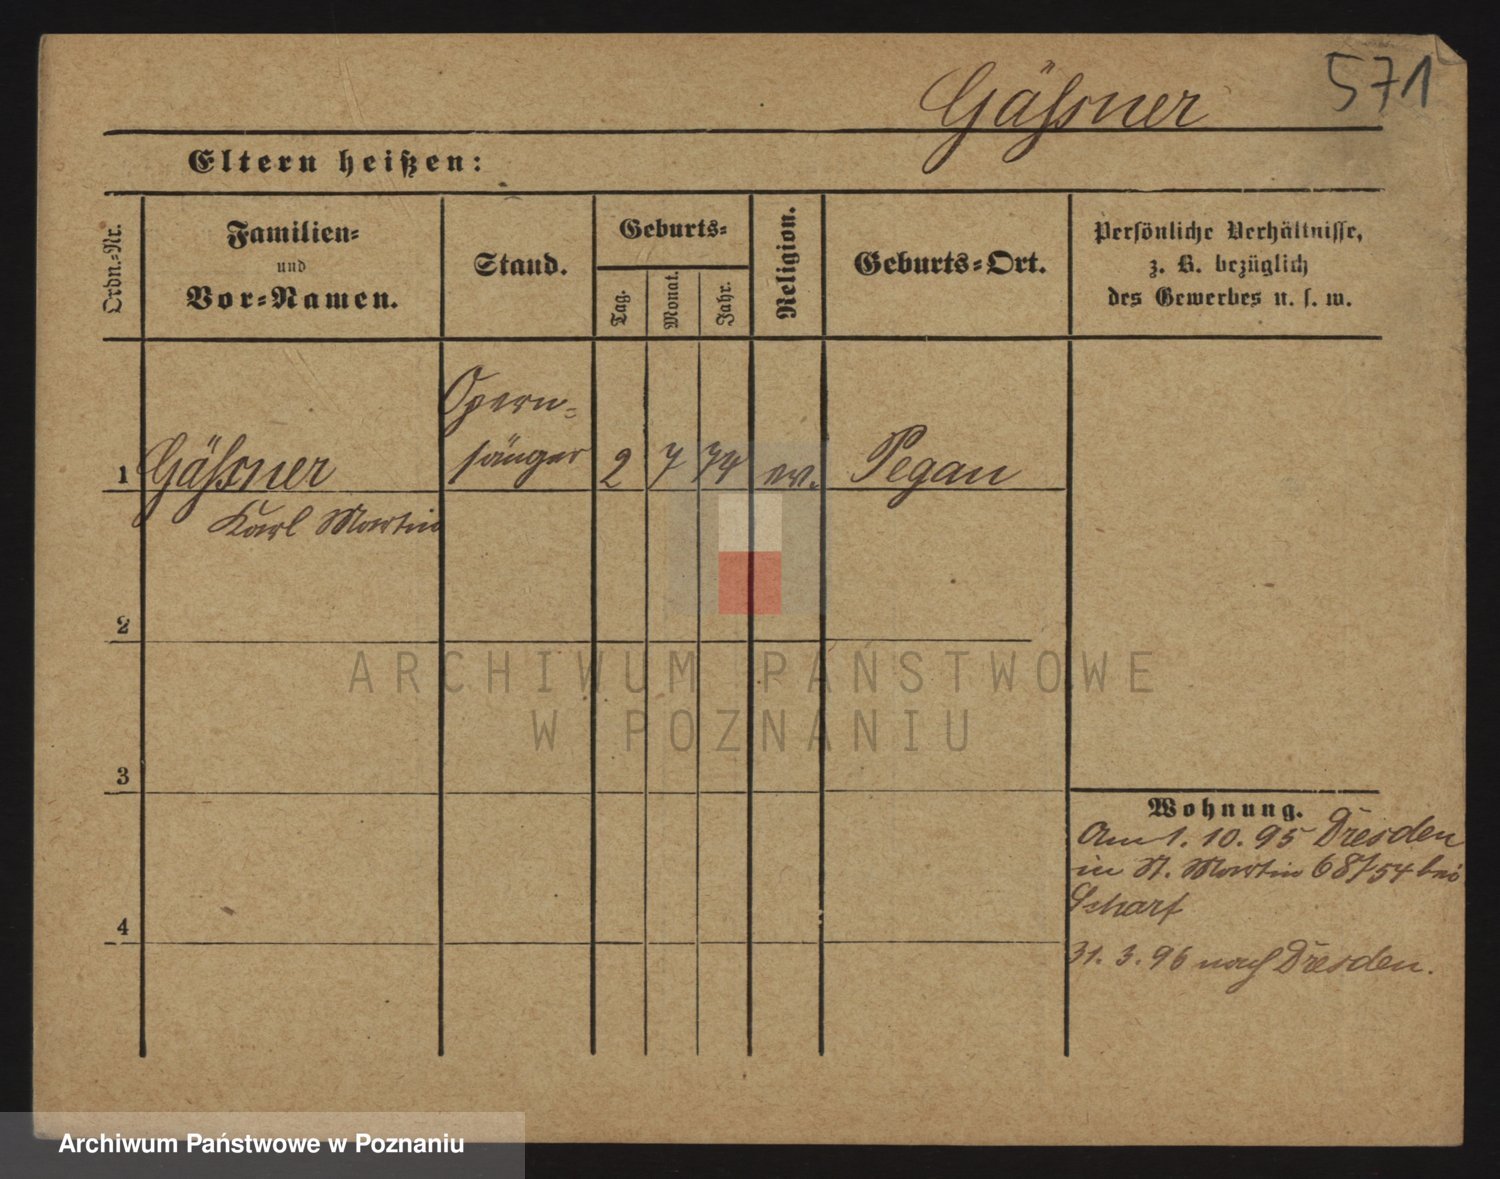 571
Gäßner
Eltern heißen:
Ordn.-Nr.
Familien-
und
Vor-Namen.
Stand.
Geburts-
Tag.
Monat.
Jahr.
Religion.
Geburts-Ort.
Persönliche Verhältnisse,
z. B. bezüglich
des Gewerbes u. s. w.
1 Gäßner Opern-
sänger 2 7 74 ev. Pegau
Karl Martin
2
3
4
Wohnung.
Am 1. 10. 95 Dresden
in St. Martin 68/54 bei
Scharf
31. 3. 96 nach Dresden.
ARCHIWUM PAŃSTWOWE
W POZNANIU
Archiwum Państwowe w Poznaniu